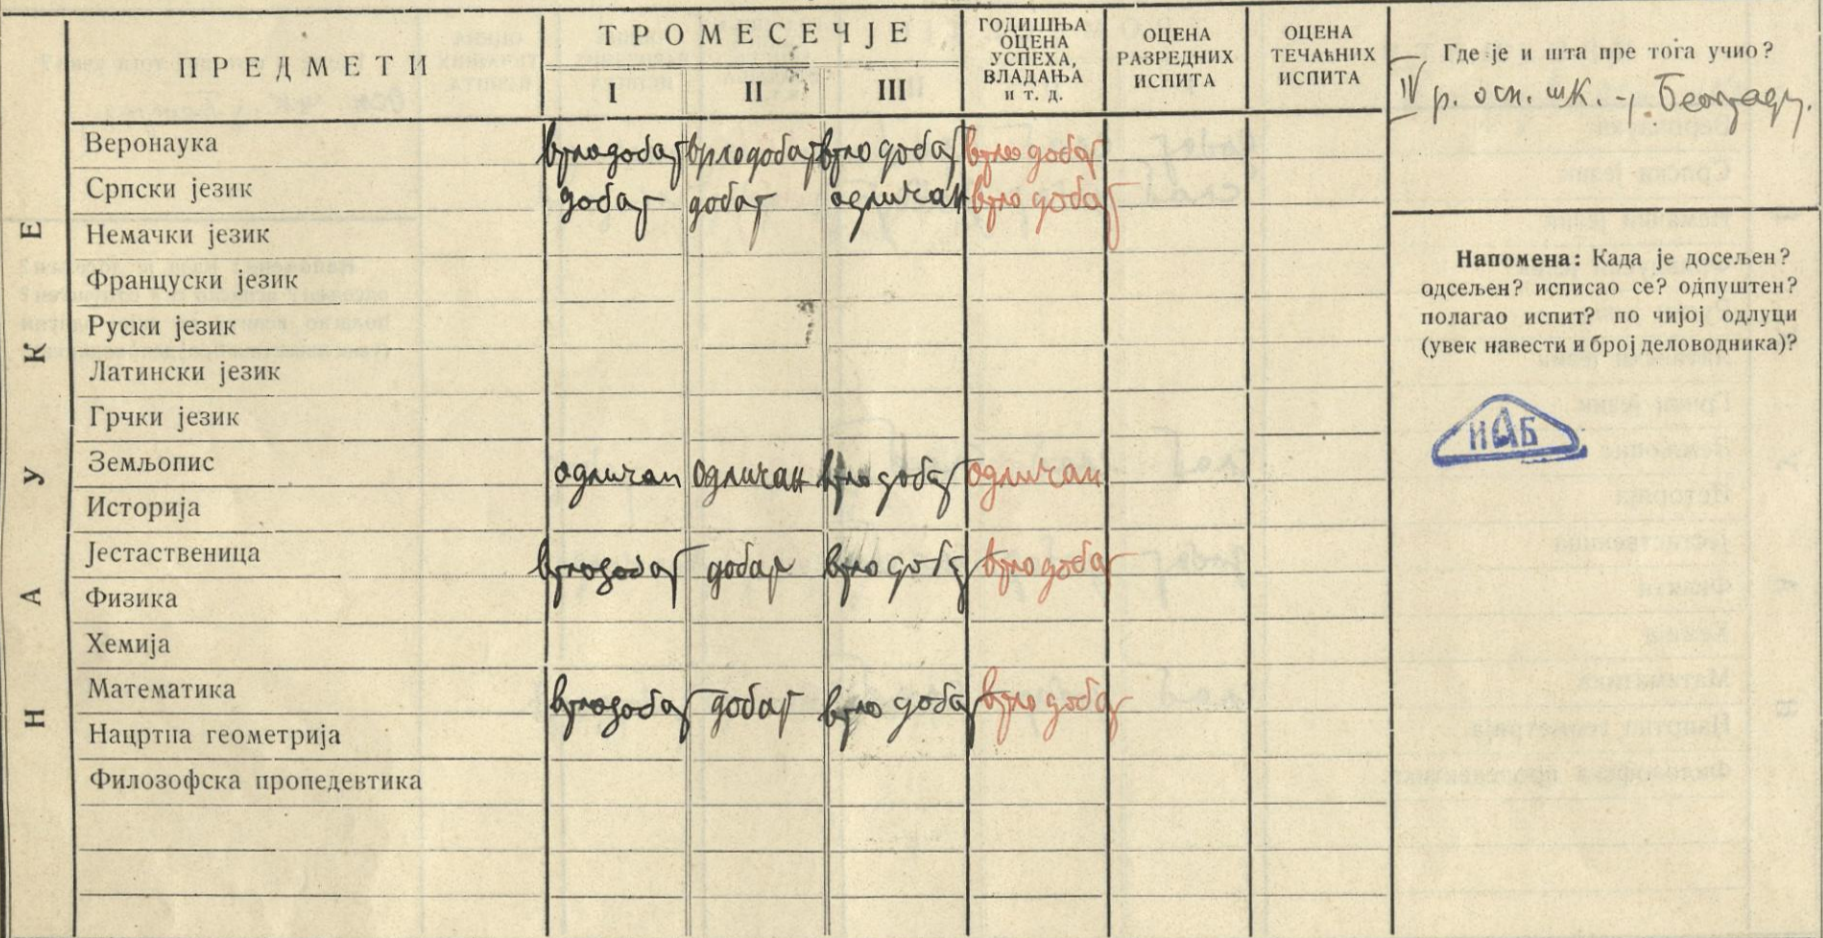 ПРЕДМЕТИ
ТРОМЕСЕЧЈЕ
I II III
ГОДИШЊА
ОЦЕНА
УСПЕХА,
ВЛАДАЊА
и т. д.
ОЦЕНА
РАЗРЕДНИХ
ИСПИТА
ОЦЕНА
ТЕЧАЋНИХ
ИСПИТА
НАУКЕ
Веронаука врлодобар врлодобар врло добар врло добар
Српски језик добар добар одличан врло добар
Немачки језик
Француски језик
Руски језик
Латински језик
Грчки језик
Земљопис одличан одличан врло добар одличан
Историја
Јестаственица врлодобар добар врло добар врло добар
Физика
Хемија
Математика врлодобар добар врло добар врло добар
Нацртна геометрија
Филозофска пропедевтика
Где је и шта пре тога учио?
IV р. осн. шк. у Београду.
Напомена: Када је досељен?
одсељен? исписао се? одпуштен?
полагао испит? по чијој одлуци
(увек навести и број деловодника)?
ИАБ